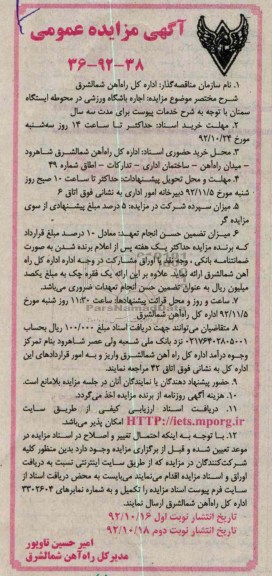 آگهی مزایده عمومی
۳۶-۹۲-۳۸
۱. نام سازمان مناقصه‌گذار: اداره کل راه‌آهن شمالشرق
شرح مختصر موضوع مزایده: اجاره باشگاه ورزشی در محوطه ایستگاه
سمنان با توجه به شرح خدمات پیوست برای مدت سه سال
۲. مهلت خرید اسناد: حداکثر تا ساعت ۱۴ روز سه‌شنبه
مورخ ۹۲/۱۰/۲۴
۳. محل خرید حضوری اسناد: اداره کل راه‌آهن شمالشرق شاهرود
- میدان راه‌آهن - ساختمان اداری - تدارکات - اطاق شماره ۴۹
۴. مهلت و محل تحویل پیشنهادات: حداکثر تا ساعت ۱۰ صبح روز
شنبه مورخ ۹۲/۱۱/۵ دبیرخانه امور اداری به نشانی فوق اتاق ۶
۵. میزان سپرده شرکت در مزایده: ۵ درصد مبلغ پیشنهادی از سوی
مزایده گر
۶. میزان تضمین حسن انجام تعهد: معادل ۱۰ درصد مبلغ قرارداد
که برنده مزایده حداکثر یک هفته پس از اعلام برنده شدن به صورت
ضمانتنامه بانکی، وجه نقد یا اوراق مشارکت در وجه اداره کل راه
آهن شمالشرق ارائه نماید. علاوه بر این ارائه یک فقره چک به مبلغ یکصد
میلیون ریال به عنوان تضمین حسن انجام تعهدات ضروری می‌باشد.
۷. ساعت و روز و محل قرائت پیشنهادها: ساعت ۱۱:۳۰ روز شنبه مورخ
۹۲/۱۱/۵ اداره کل راه‌آهن شمالشرق
۸. متقاضیان می‌توانند جهت دریافت اسناد مبلغ ۱۰۰/۰۰۰ ریال بحساب
۲۱۷۶۴۰۲۸۵۰۰۱ نزد بانک ملی شعبه ولی عصر شاهرود بنام تمرکز
وجوه درآمد اداره کل راه آهن شمالشرق واریز و به امور قراردادهای این
اداره کل به نشانی فوق اتاق ۴۲ مراجعه نمایند.
۹. حضور پیشنهاد دهندگان یا نمایندگان آنان در جلسه مزایده بلامانع است.
۱۰. هزینه آگهی روزنامه از برنده مزایده اخذ می‌گردد.
۱۱. دریافت اسناد ارزیابی کیفی از طریق سایت
HTTP://iets.mporg.ir امکان پذیر می‌باشد.
۱۲. با توجه به اینکه احتمال تغییر و اصلاح در اسناد مزایده در
موعد تعیین شده و قبل از برگزاری مزایده وجود دارد بدین منظور کلیه
شرکت‌کنندگان در مزایده که از طریق سایت اینترنتی نسبت به دریافت
اوراق و اسناد مزایده اقدام می‌نمایند می‌بایست به محض دریافت اسناد از
سایت فرم پیوست اسناد مزایده را تکمیل و به شماره نمابرهای ۳۳۰۲۶۰۴
اداره کل راه‌آهن شمالشرق ارسال نمایند.
تاریخ انتشار نوبت اول ۹۲/۱۰/۱۶
تاریخ انتشار نوبت دوم ۹۲/۱۰/۱۸
امیر حسین تاوپور
مدیرکل راه‌آهن شمالشرق